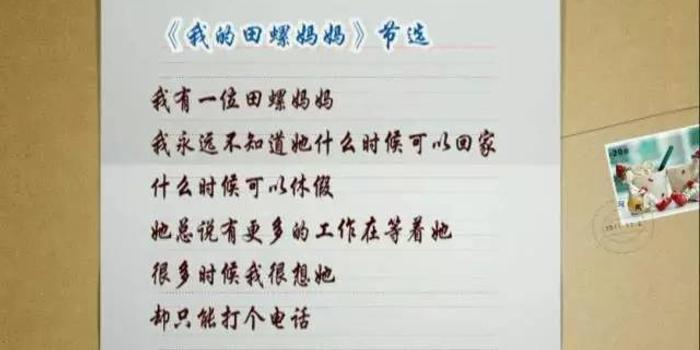 《我的田螺妈妈》节选
我有一位田螺妈妈
我永远不知道她什么时候可以回家
什么时候可以休假
她总说有更多的工作在等着她
很多时候我很想她
却只能打个电话